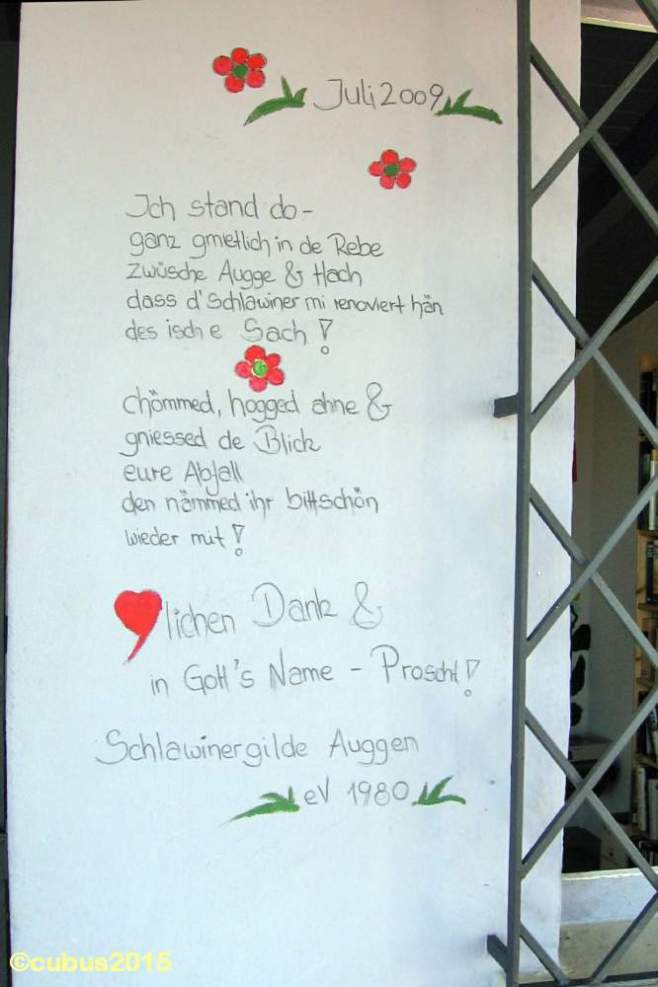 Juli 2009
Ich stand do -
ganz gmietlich in de Rebe
zwüsche Augge & Hach
dass d'Schlawiner mi renoviert hän
des isch e Sach!
chömmed, hogged ahne &
gniessed de Blick
eure Abfall
den nämmed ihr bittschön
wieder mit!
lichen Dank &
in Gott's Name - Proscht!
Schlawinergilde Auggen
eV 1980
©cubus2015